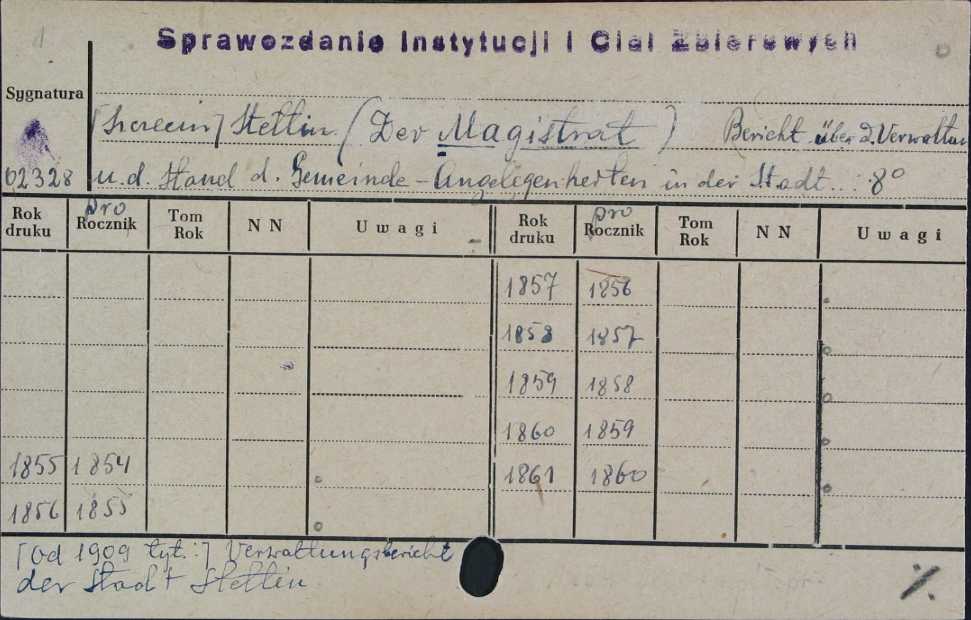 Sprawozdanie Instytucji i Ciał Zbiorowych
Sygnatura
[Szczecin] Stettin (Der Magistrat) Bericht über d. Verwaltun
02328 u. d. Stand d. Gemeinde-Angelegenheiten in der Stadt..: 8°
Rok druku pro Rocznik Tom Rok NN Uwagi Rok druku pro Rocznik Tom Rok NN Uwagi
1857 1856
1858 1857
1859 1858
1860 1859
1855 1854 1861 1860
1856 1855
[Od 1909 tyt.:] Verwaltungsbericht
der Stadt Stettin